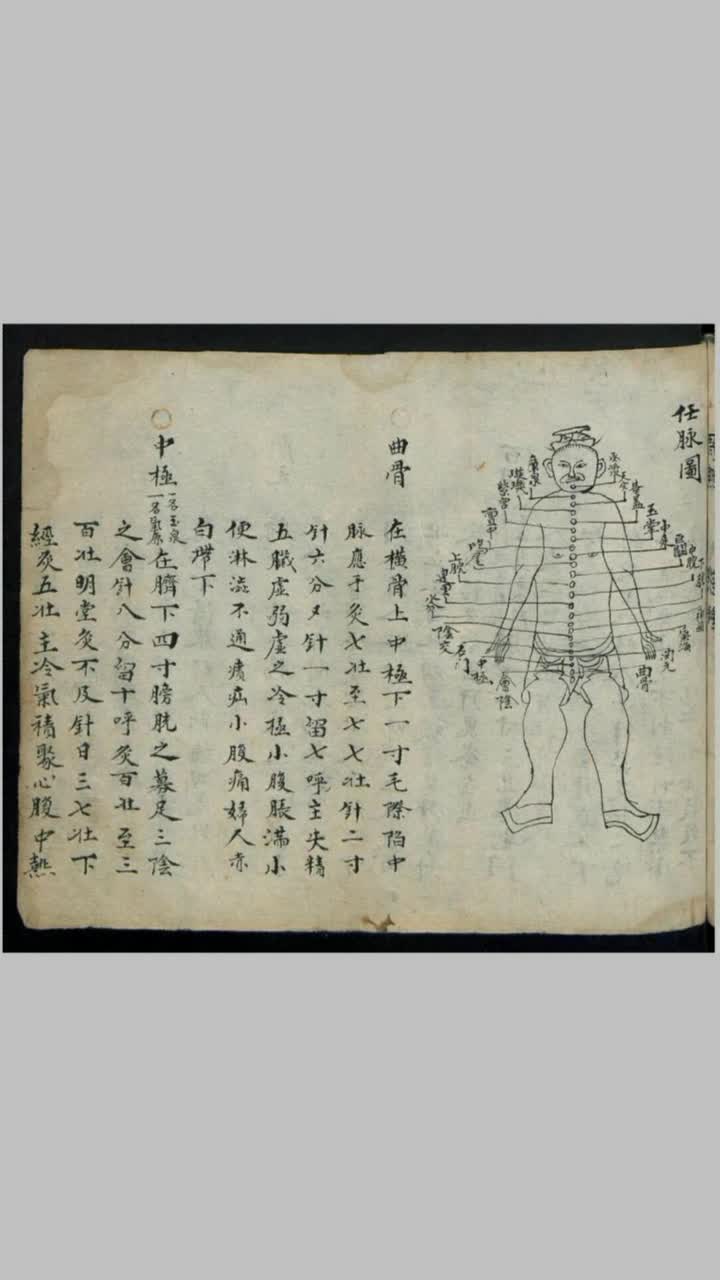 任脉圖
承漿
廉泉
天突
璇璣
華盖
紫宮
玉堂
膻中
中庭
鳩尾
巨闕
上脘
中脘
建里
下脘
水分
陰交
氣海
石門
関元
中極
曲骨
會陰
曲骨
在橫骨上中極下一寸毛際陷中
脉應手灸七壯至七七壯針二寸
針六分又針一寸留七呼主失精
五臟虛弱虛之冷極小腹脹滿小
便淋澁不通㿉疝小腹痛婦人赤
白帶下
中極
一名玉泉
一名氣原
在臍下四寸膀胱之募足三陰
之會針八分留十呼灸百壯至三
百壯明堂灸不及針日三七壯下
經灸五壯主冷氣積聚心腹中熱